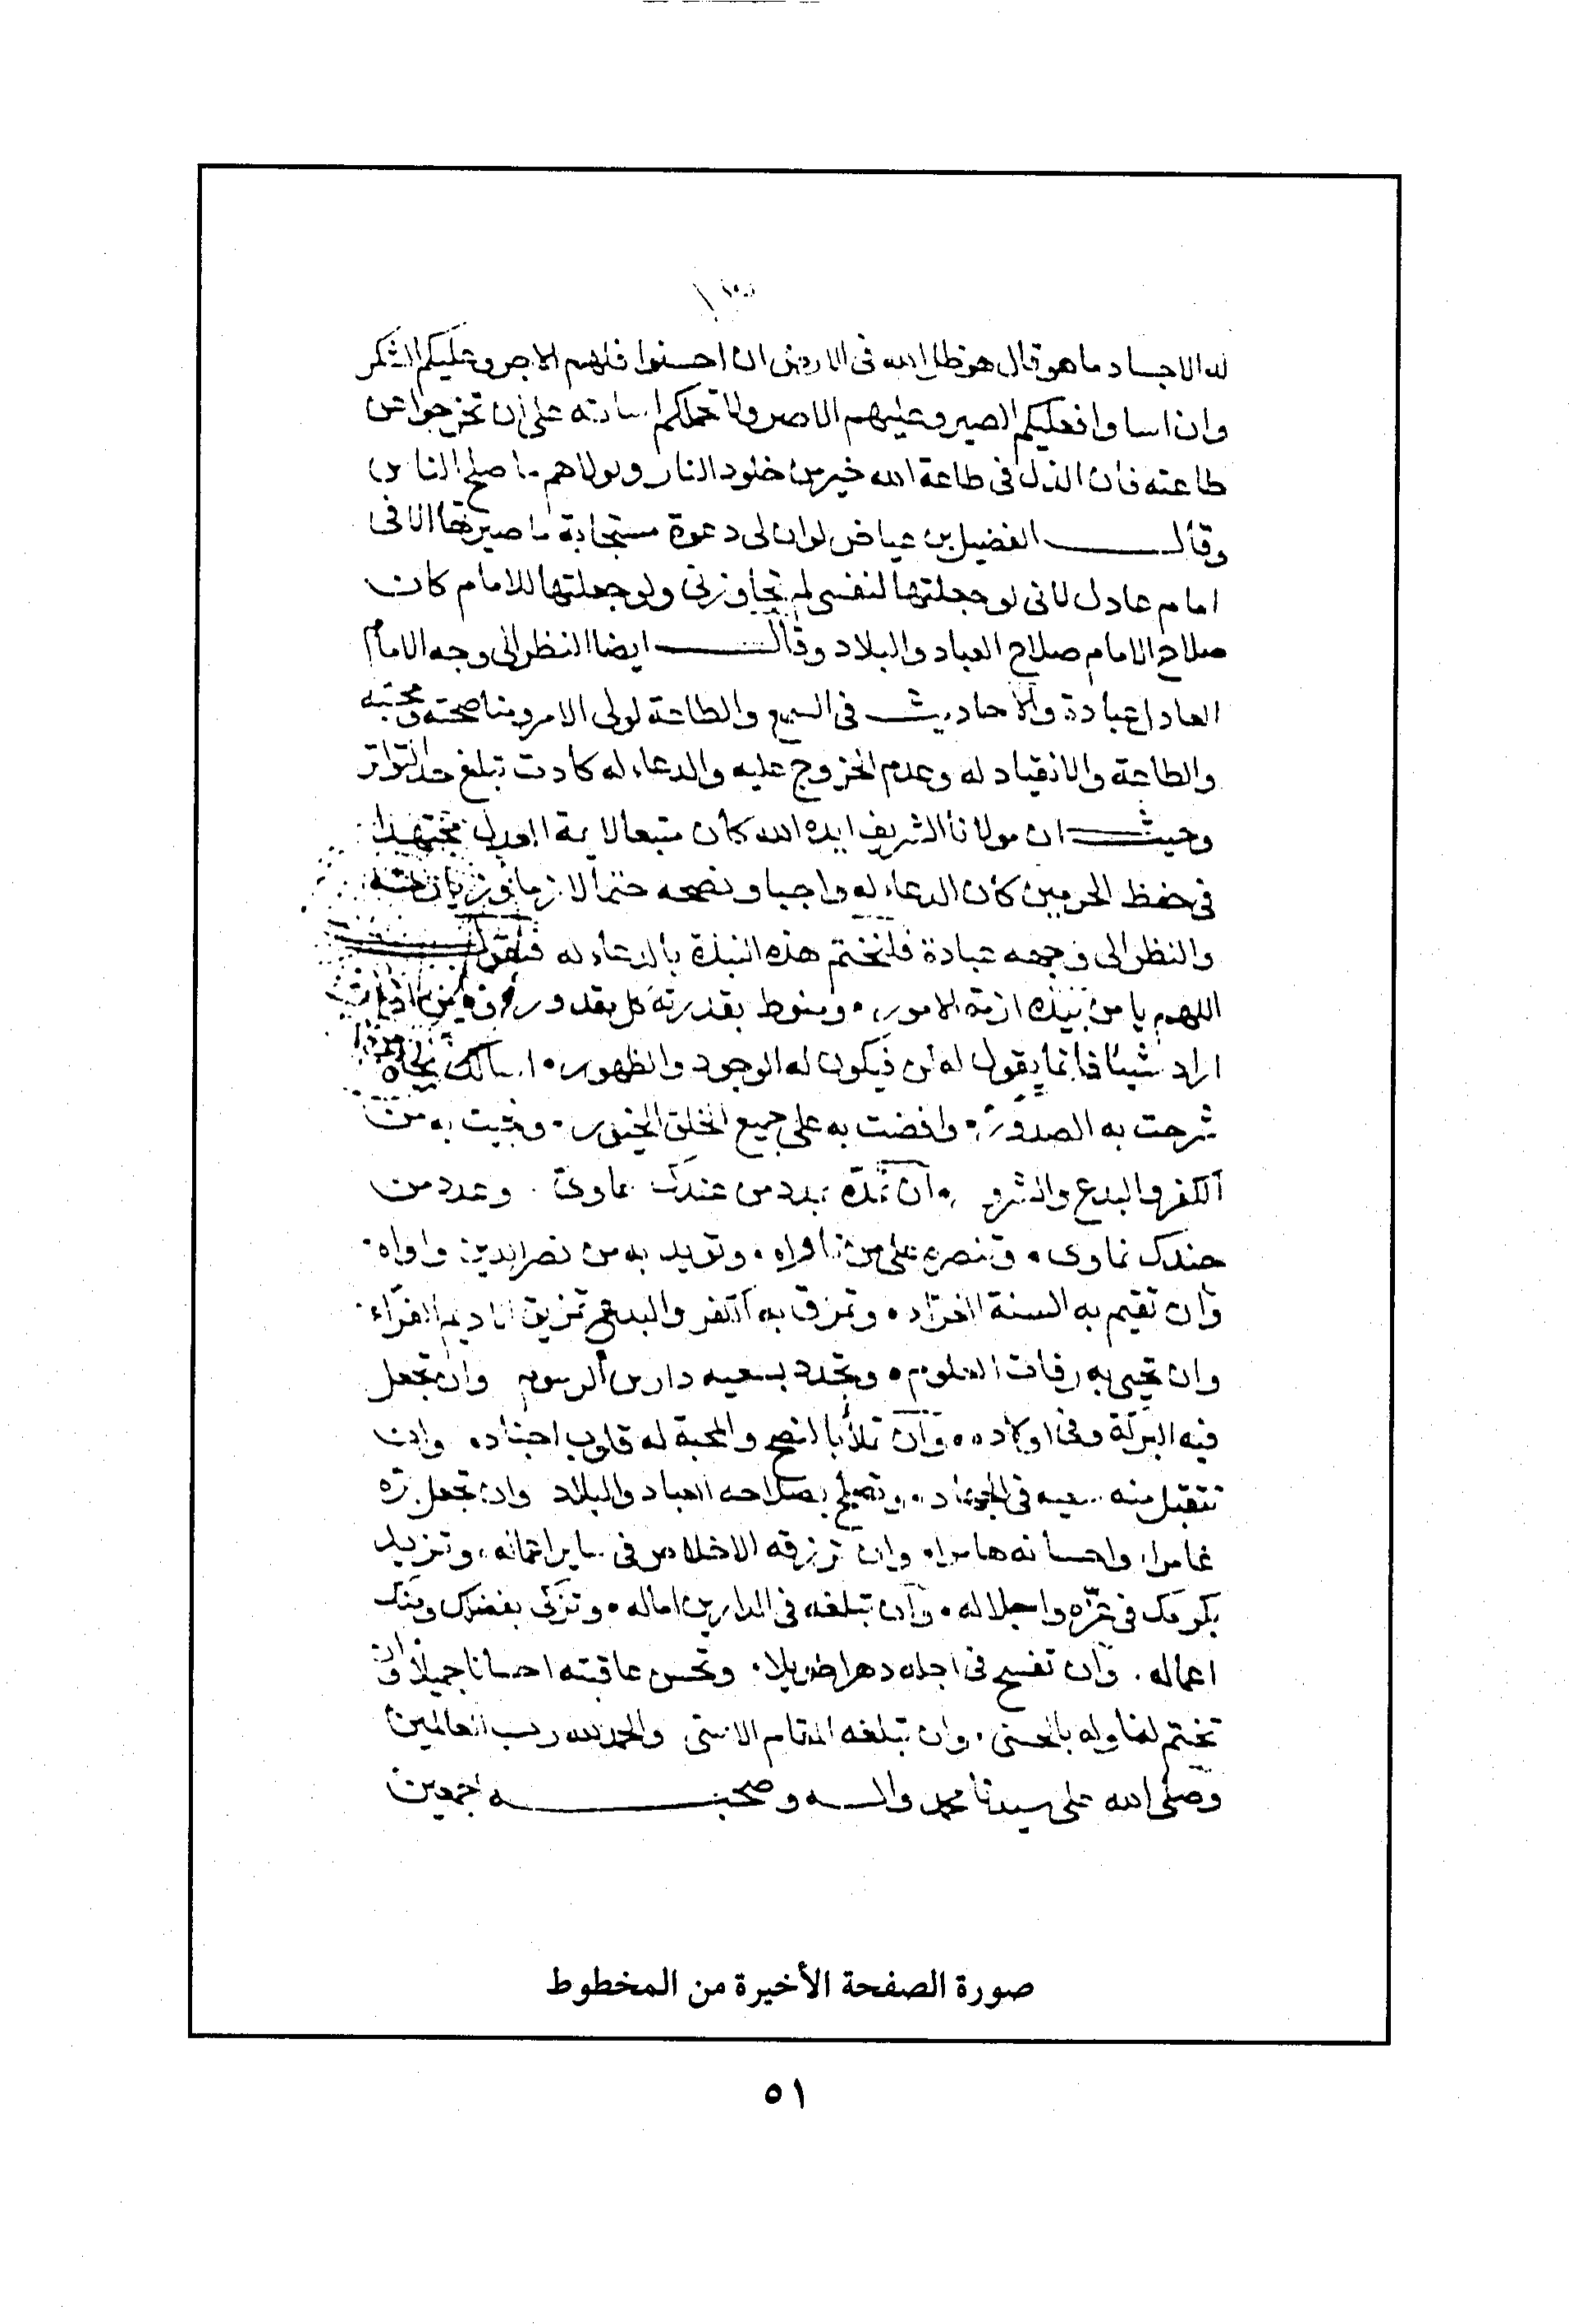 له الاجساد ما هو قال هو ظل الله فى الارض ان احسنوا فلهم الاجر وعليكم الشكر
وان اساوا فعليكم الصبر وعليهم الاصر ولا تحملكم اساءته على ان تخرجوا عن
طاعته فان الذل فى طاعة الله خير من خلود النار ولولاهم ما صلح الناس
وقال الفضيل بن عياض لو ان لى دعوة مستجابة ما صيرتها الا فى
امام عادل لانى لو جعلتها لنفسى لم تجاوزنى ولو جعلتها للامام كان
صلاح الامام صلاح العباد والبلاد وقال ايضا النظر الى وجه الامام
العادل عبادة والاحاديث فى السمع والطاعة لولى الامر ومناصحته ومحبته
والطاعة والانقياد له وعدم الخروج عليه والدعاء له كادت تبلغ حد التواتر
وحيث ان مولانا الشريف ايده الله كان متبعا لايمة العدل مجتهدا
فى حفظ الحرمين كان الدعاء له واجبا ونصحه حتما لازما وزيارته
والنظر الى وجهه عبادة فلنختم هذه النبذة بالدعاء له فنقول
اللهم يا من بيده ازمة الامور، ومنوط بقدرته كل مقدور، اذا
اراد شيئا فانما يقول له كن فيكون له الوجود والظهور، اسالك بجاه من
شرحت به الصدور، وافضت به على جميع الخلق الخيور، ونجيت به من
الكفر والبدع والشرور، ان تمده بمدد من عندك سماوى، وعدد من
جندك نماوى، وتنصره على من ناواه، وتويد به من نصر الدين واواه،
وان تقيم به السنة الغراء، وتمزق به الكفر والبدع تمزيق الاديم الفراء،
وان تحيى به رفات العلوم، وتجدد بسعيه دارس الرسوم وان تجعل
فيه البركة وفى اولاده، وان تملأ بالنصح والمحبة له قلوب اجناده، وان
تتقبل منه سعيه فى الجهاد، وتصلح بصلاحه العباد والبلاد وان تجعل بره
غامرا، واحسانه هامرا، وان ترزقه الاخلاص فى ساير، وتزيد
بكرمك فى عزه واجلاله، وان تبلغه فى الدارين اماله، وتزكى بفضلك ومنك
اعماله، وان تفسح فى اجله دهرا طويلا، وتحسن عاقبته احسانا جميلا وان
تختم لنا وله بالحسنى، وان تبلغه المقام الاسنى والحمد لله رب العالمين
وصلى الله على سيدنا محمد واله وصحبه اجمعين
صورة الصفحة الأخيرة من المخطوط
٥١